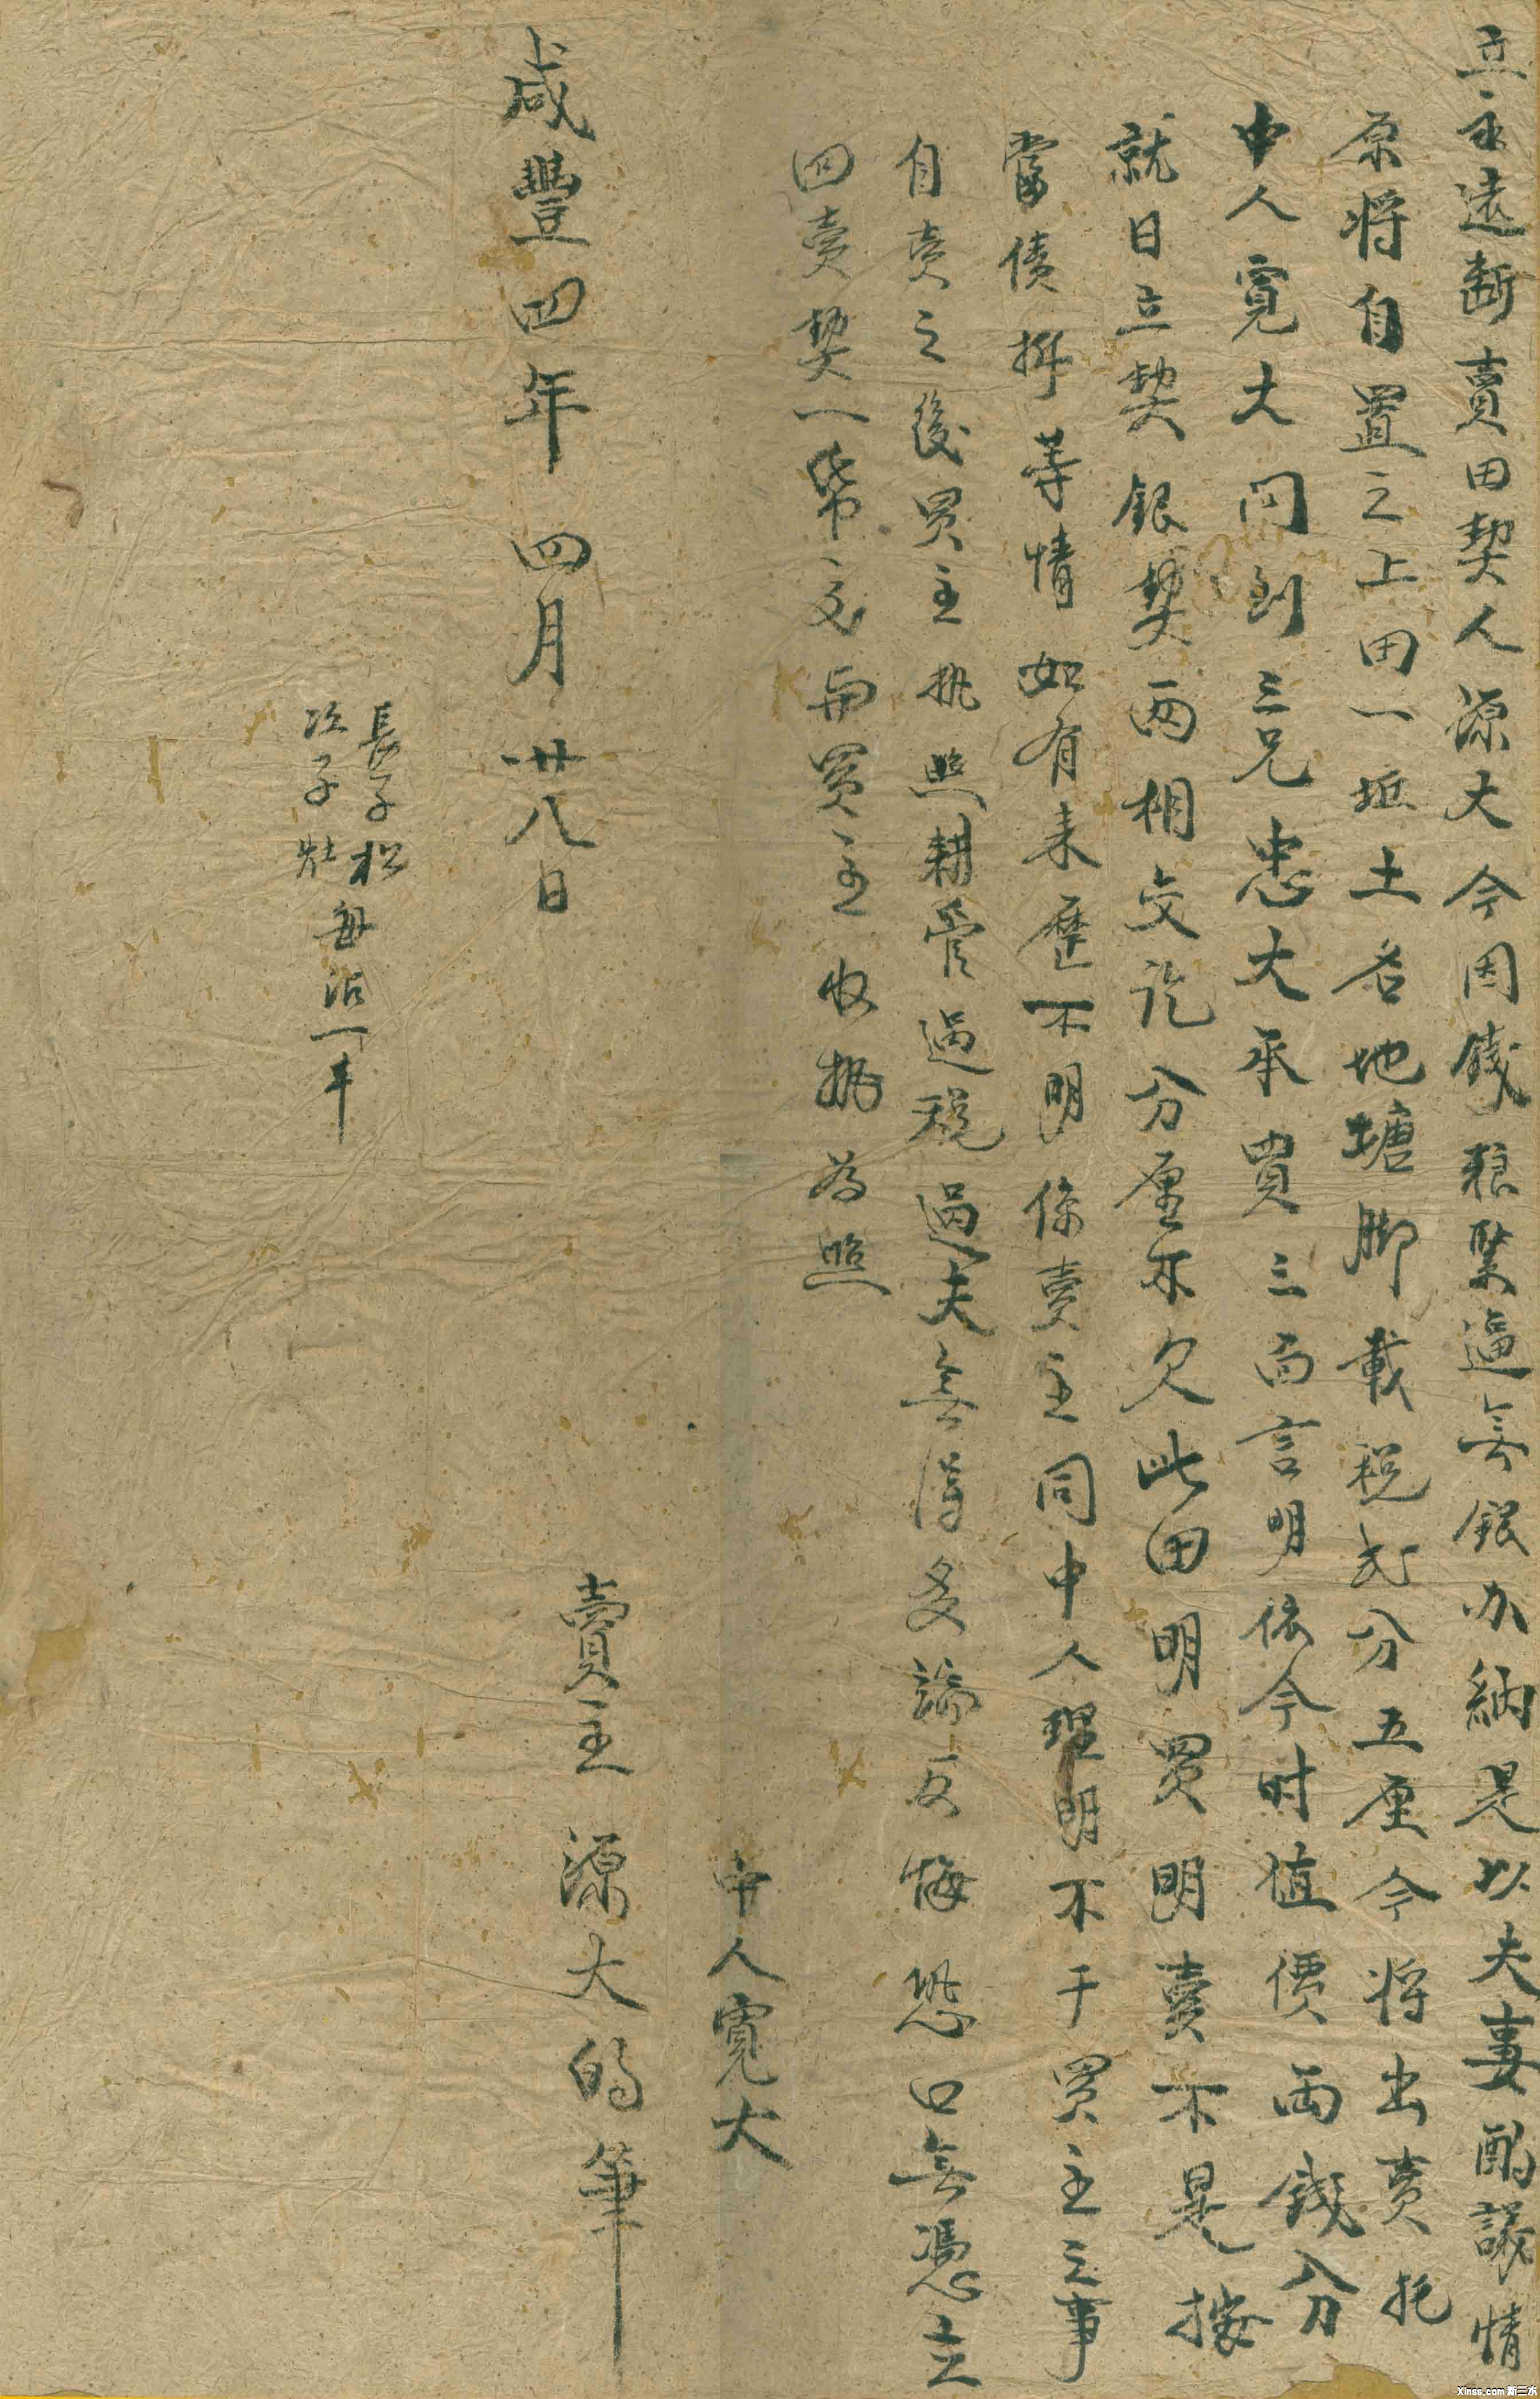 立永遠斷賣田契人源大今因錢粮緊逼無銀办納是以夫妻酌議情
原将自置之上田一坵土名地塘脚載税弍分五厘今将出賣托
中人寛大问到三兄忠大承買三面言明依今时值價両錢分
就日立契銀契両相交訖分厘不欠此田明買明賣不是按
當債折等情如有来歷不明係賣主同中人理明不干買主之事
自賣之後買主执照耕管過税過夫無得多論反悔恐口無憑立
田賣契一帋交與買主收执為照
中人寛大
賣主源大的筆
咸豐四年四月廿八日
長子松
次子
每沾一半
Xinss.com新三水